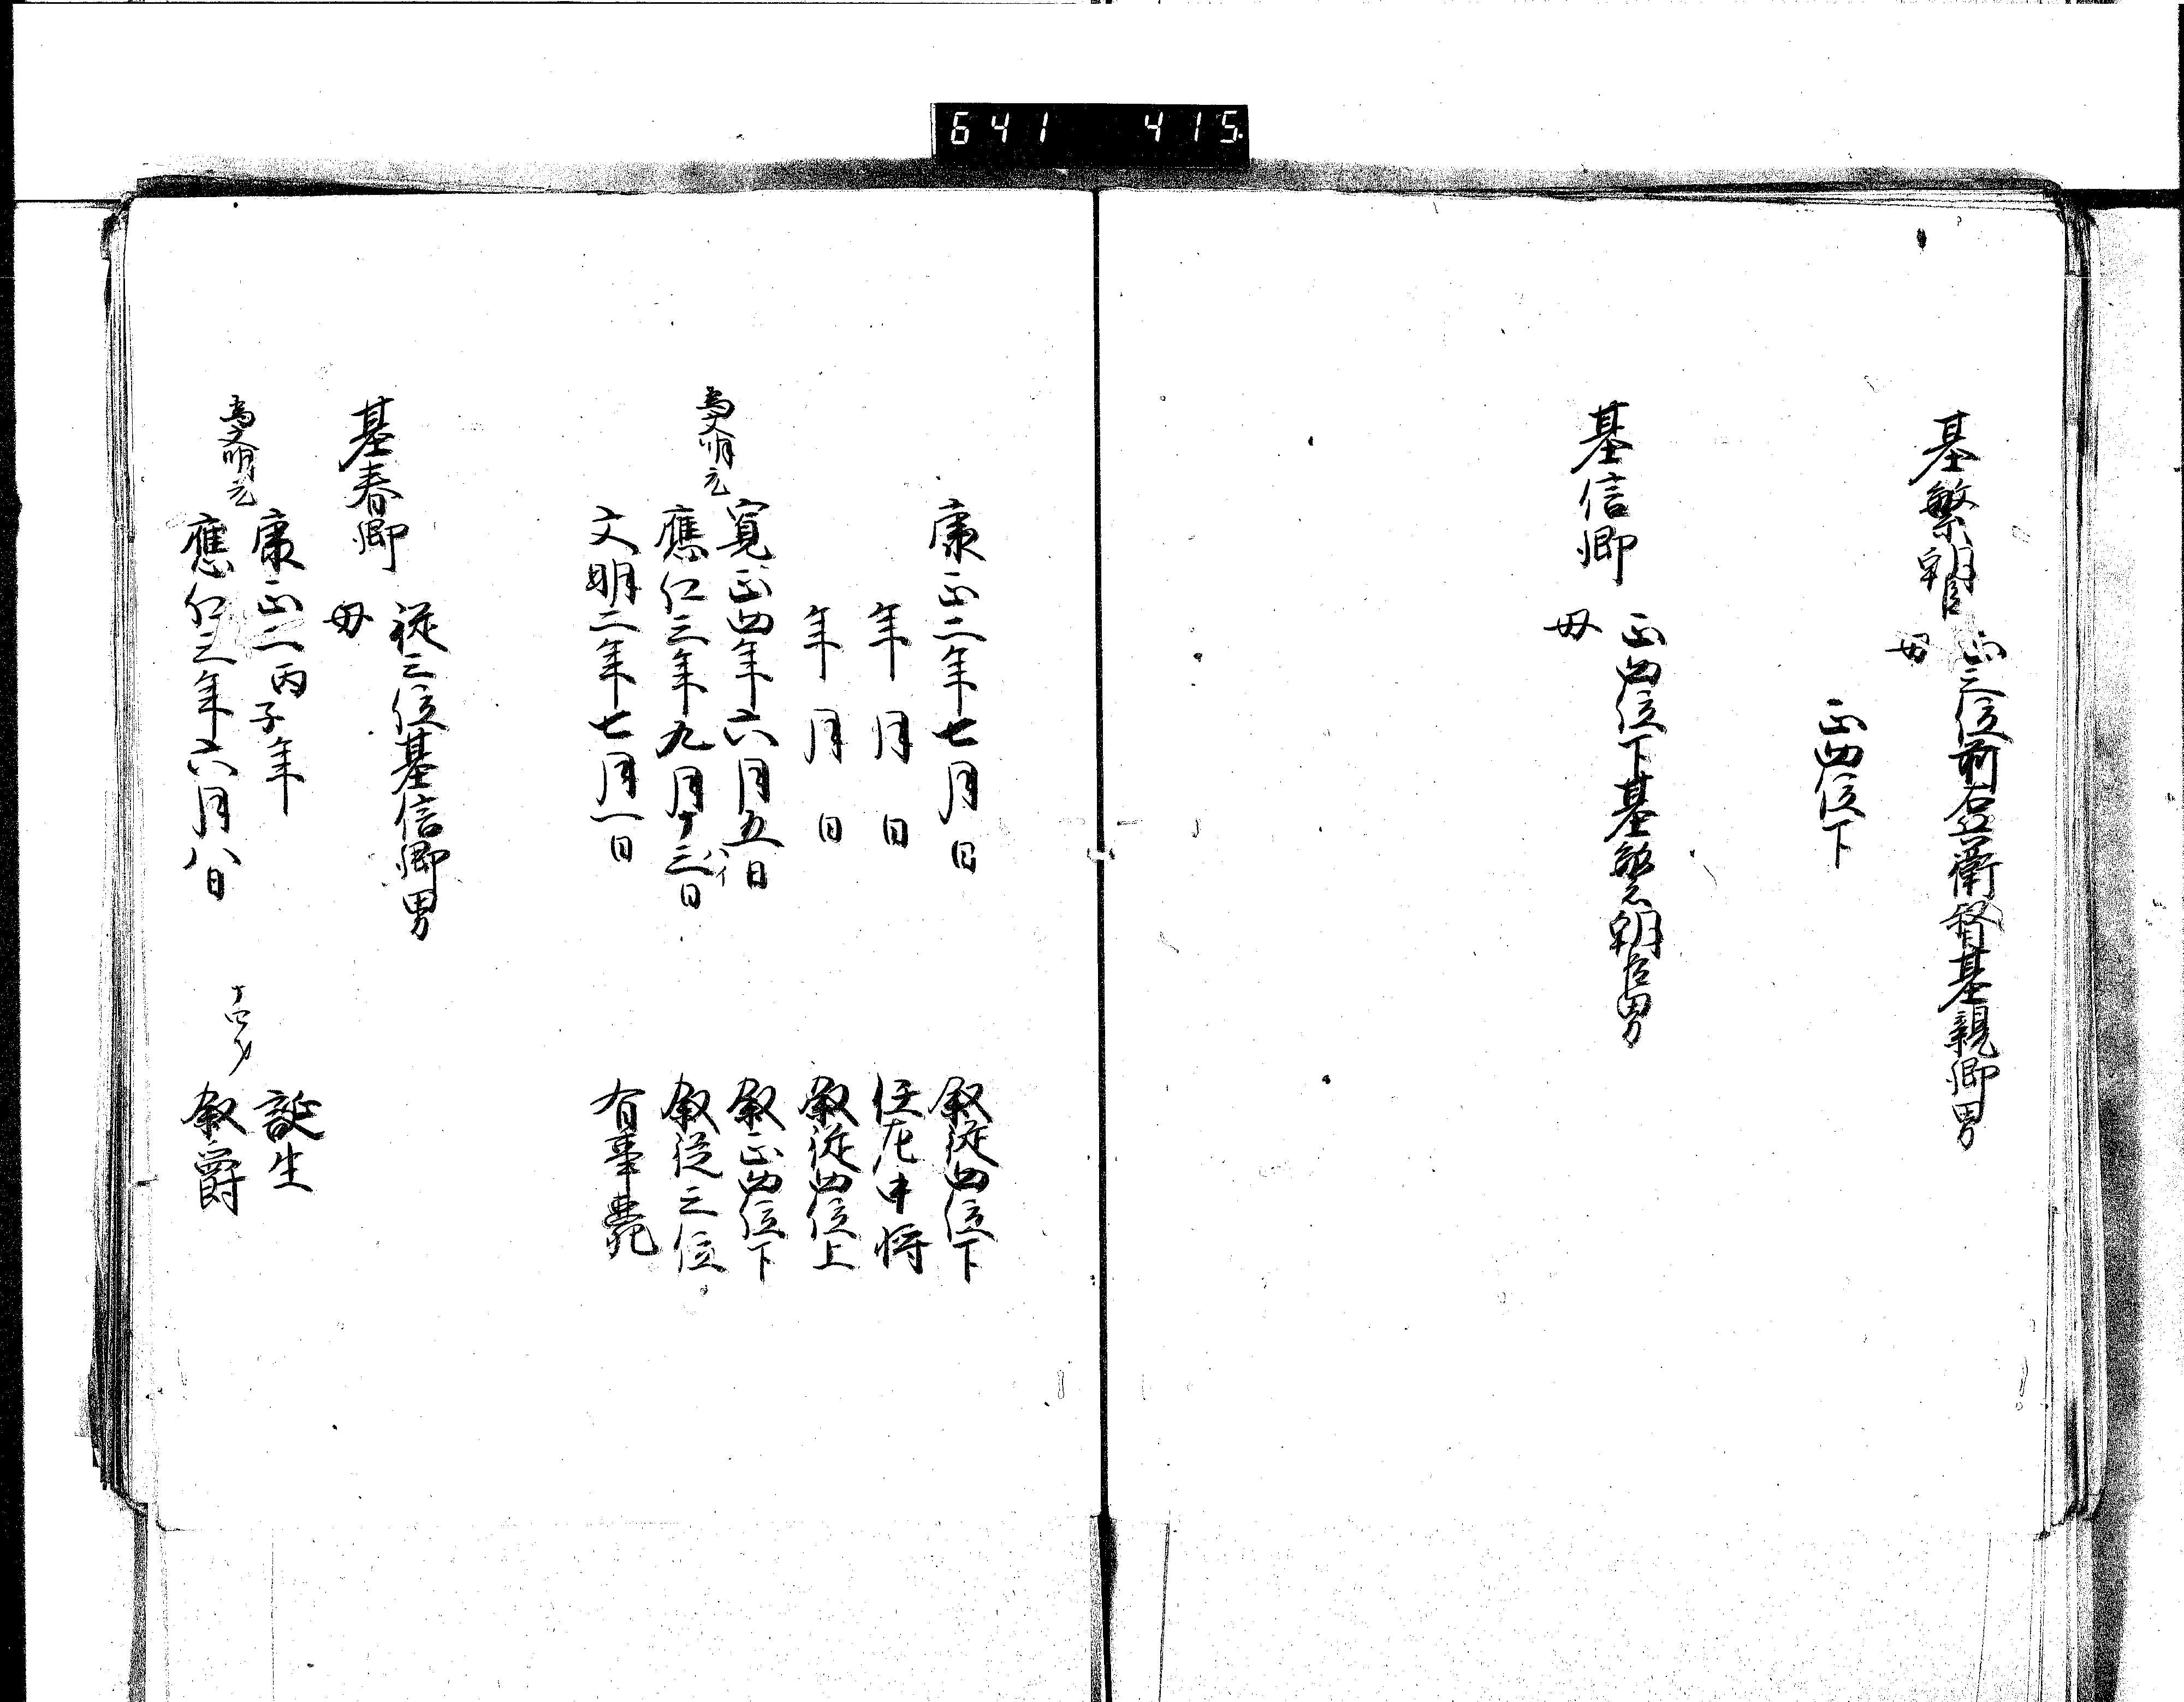 641 415
基繁朝臣
正三位前右兵衛督基親卿男
母
正四位下
基信卿
正四位下基繁朝臣男
母
康正二年七月 日 叙従四位下
年 月 日 任左中将
年 月 日 叙従四位上
寛正四年六月五日 叙正四位下
為文明元
應仁三年九月十三日 叙従三位
文明二年七月一日 有事薨
基春卿
従三位基信卿男
母
康正二丙子年 誕生
為文明元
應仁三年六月八日 十四才 叙爵